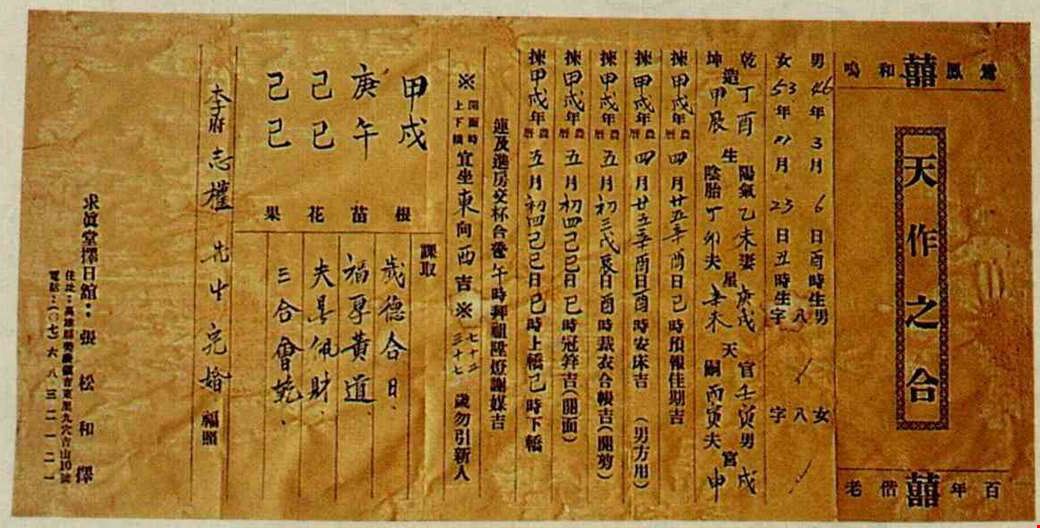 鸞鳳和鳴
囍
天作之合
囍
百年偕老
男46年3月6日酉時生男八字
女53年11月23日丑時生女八字
乾造丁酉生陽氣乙未妻星庚戌天官壬寅男宮戌
坤造甲辰生陰胎丁卯夫星辛未天嗣丙寅夫宮申
揀甲戌年農曆四月廿五辛酉日巳時預報佳期吉
揀甲戌年農曆四月廿五辛酉日酉時安床吉(男方用)
揀甲戌年農曆五月初三戊辰日酉時裁衣合帳吉(開剪)
揀甲戌年農曆五月初四己巳日巳時冠筓吉(開面)
揀甲戌年農曆五月初四己巳日巳時上轎巳時下轎
連及進房交杯合巹午時拜祖陞燈謝媒吉
※開面時上下轎宜坐東向西吉※七十二三十七歲勿引新人
甲戌 根
庚午 苗
己巳 花
己巳 果
課取
歲德合日、
福厚黃道、
夫星佩財、
三合會乾、
李府志權先生完婚福照
求眞堂擇日舘:張松和擇
電話:(〇七)六八三二一二一